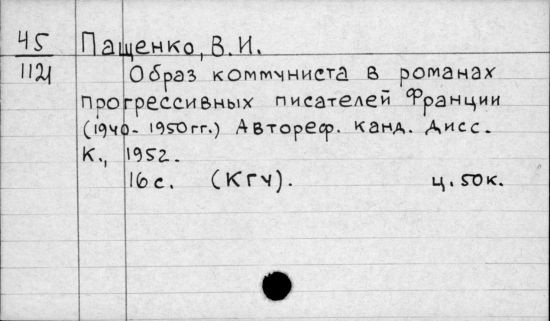 45
1121
Пащенко, В.И.
Образ коммуниста в романах
прогрессивных писателей Франции
(1940-1950гг.) Автореф. канд. дисс.
К., 1952.
16с. (КГУ). ц.50к.